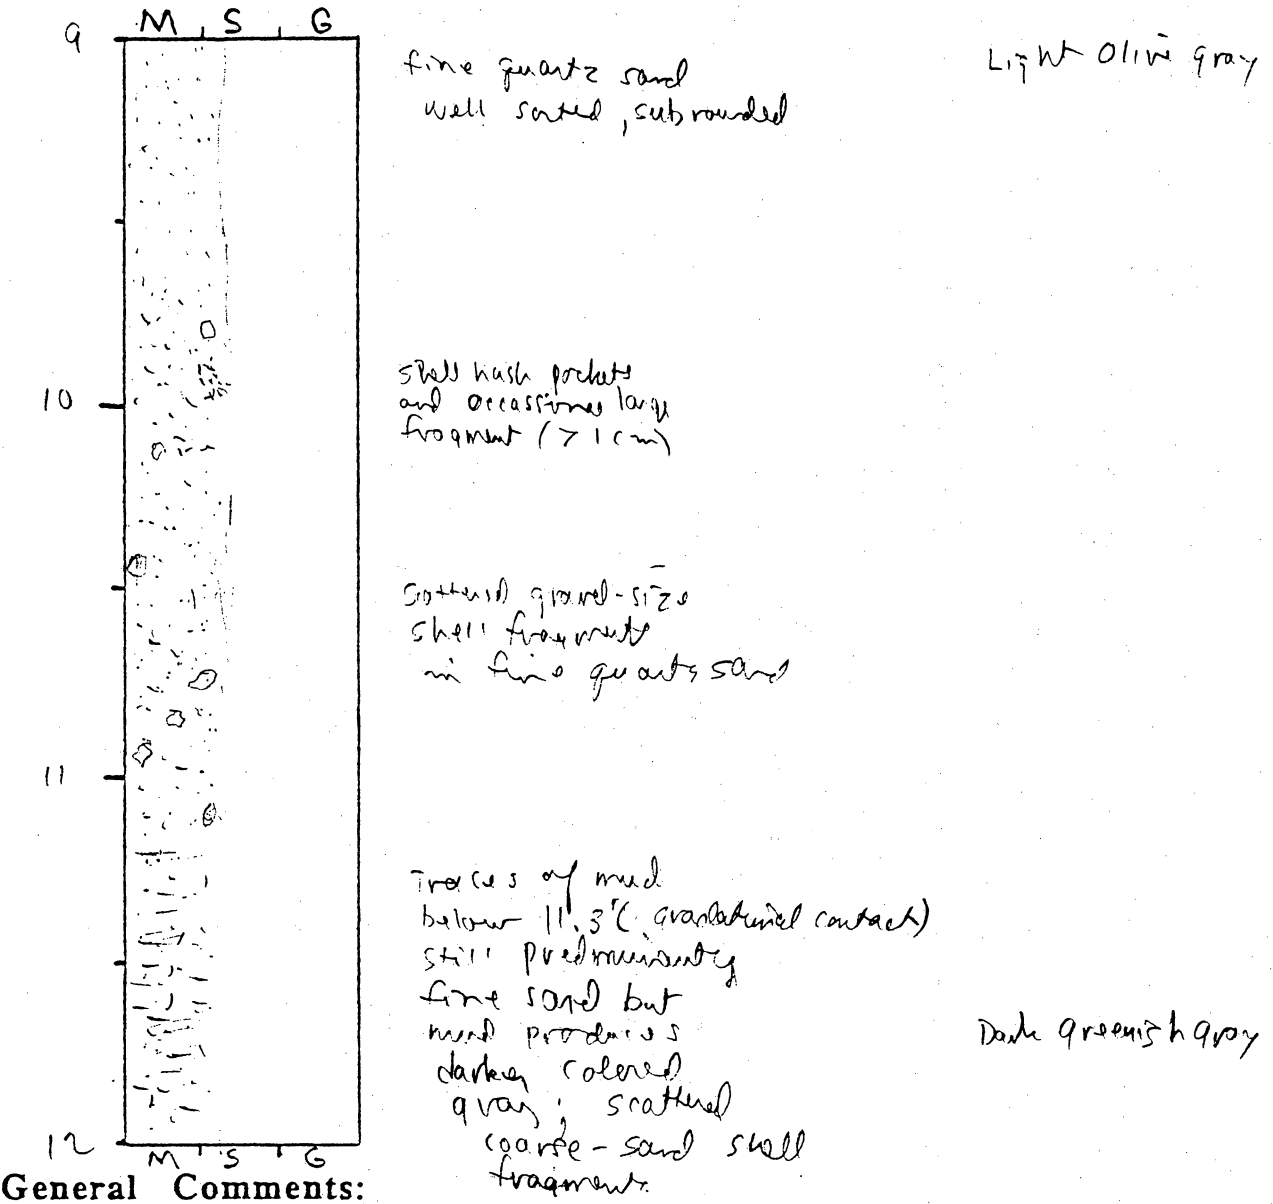 M S G
9
fine quartz sand
well sorted, subrounded
Light Olive gray
10
shell hash pockets
and occassional large
fragment (>1cm)
scattered gravel-size
shell fragments
in fine quartz sand
11
Traces of mud
below 11.3' (gradational contact)
still predominantly
fine sand but
mud produces
darker colored
gray; scattered
coarse-sand shell
fragments.
Dark greenish gray
12
M S G
General Comments: